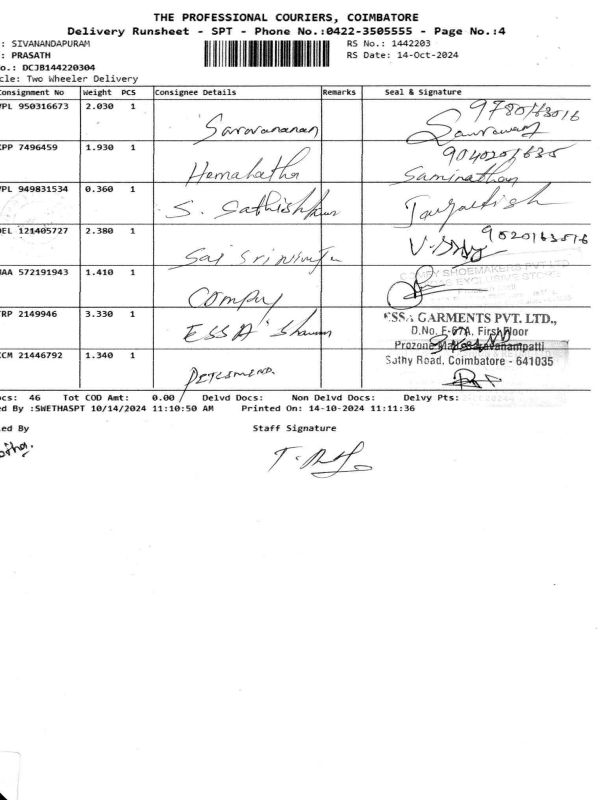 THE PROFESSIONAL COURIERS, COIMBATORE
Delivery Runsheet - SPT - Phone No.:0422-3505555 - Page No.:4
: SIVANANDAPURAM RS No.: 1442203
: PRASATH RS Date: 14-Oct-2024
o.: DCJB144220304
cle: Two Wheeler Delivery
Consignment No Weight PCS Consignee Details Remarks Seal & Signature
VPL 950316673 2.030 1 Saravananan
KPP 7496459 1.930 1 Hemalatha Saminathan
VPL 949831534 0.360 1 S. Sathishkur
DEL 121405727 2.380 1 Sai Sriniv
MAA 572191943 1.410 1 Compy
TRP 2149946 3.330 1 ESSA ESSA GARMENTS PVT. LTD.,
D.No. E-67A, First Floor
Prozone Mall Saravanampatti
CCM 21446792 1.340 1 Sathy Road, Coimbatore - 641035
ocs: 46 Tot COD Amt: 0.00 Delvd Docs: Non Delvd Docs: Delvy Pts:
ed By :SWETHASPT 10/14/2024 11:10:50 AM Printed On: 14-10-2024 11:11:36
ed By Staff Signature